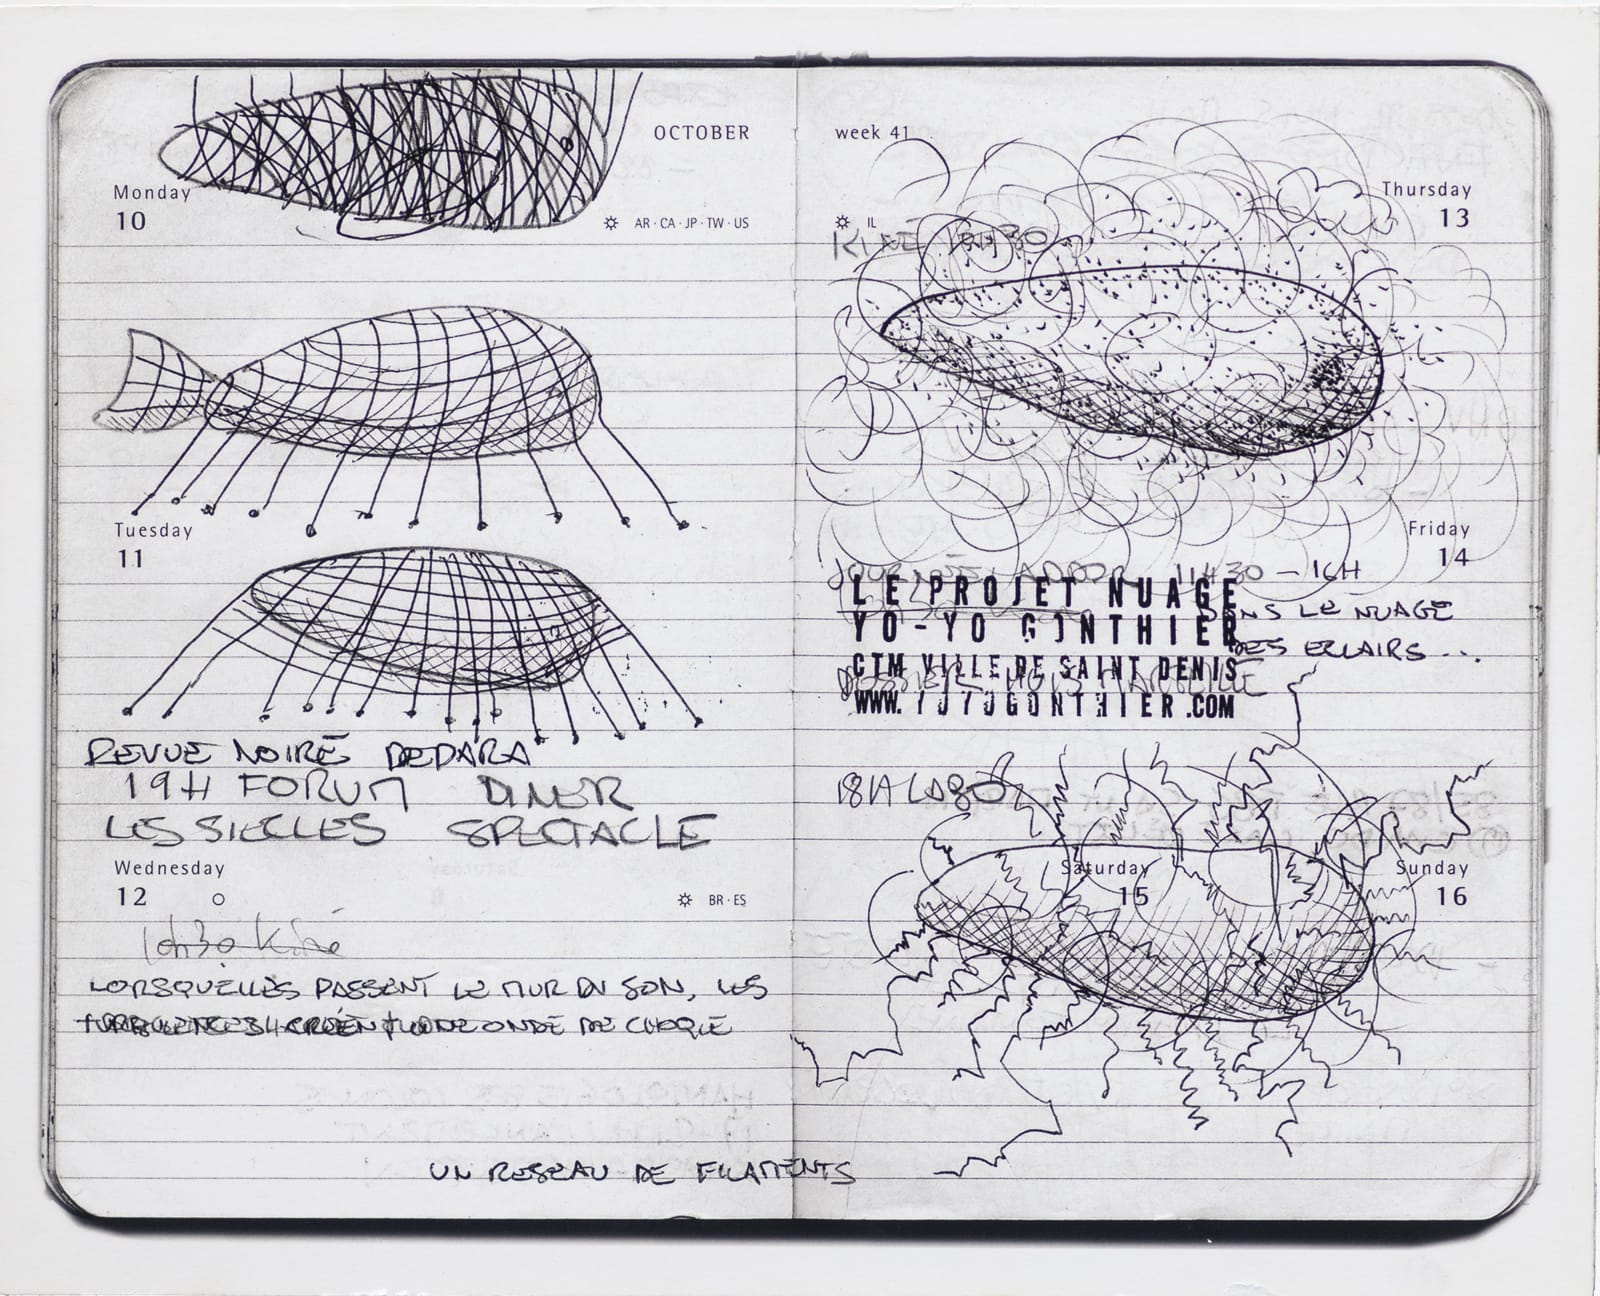 OCTOBER
Monday
10
AR · CA · JP · TW · US
Tuesday
11
REVUE NOIRE DEDARA
19H FORUM DINER
LES SIECLES SPECTACLE
Wednesday
12
BR · ES
10h30 Kiné
LORSQUELLES PASSENT LE MUR DU SON, LES
TURBULENCES CRÉENT UNE ONDE DE CHOQUE
UN RESEAU DE FILAMENTS
week 41
Thursday
13
IL
KINÉ 10H30
Friday
14
11H30 – 16H
LE PROJET NUAGE
YO-YO GONTHIER
CTM VILLE DE SAINT DENIS
WWW.YOYOGONTHIER.COM
DANS LE NUAGE
DES ECLAIRS...
18H LABO
Saturday
15
Sunday
16